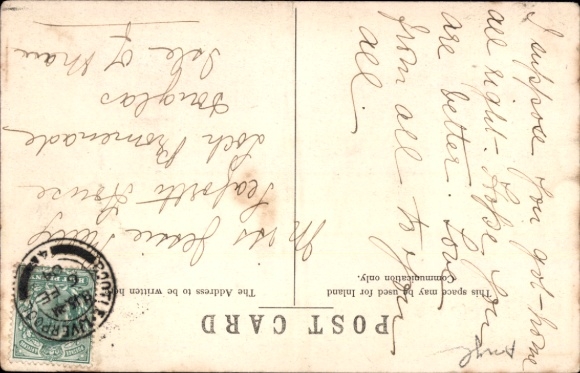 POST CARD
This space may be used for Inland
Communication only.
The Address to be written here
I suppose you got home
all right. Hope you
are better. Love
from all to you
all.
Miss Jessie
Seaforth House
Loch Promenade
Douglas
Isle of Man
BOOTLE·LIVERPOOL